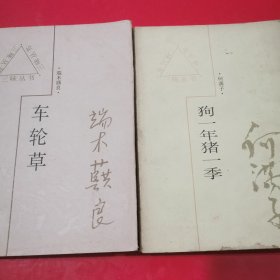 三味丛书
·端木蕻良·
车轮草
端木蕻良
·何满子·
狗一年猪一季
何满子